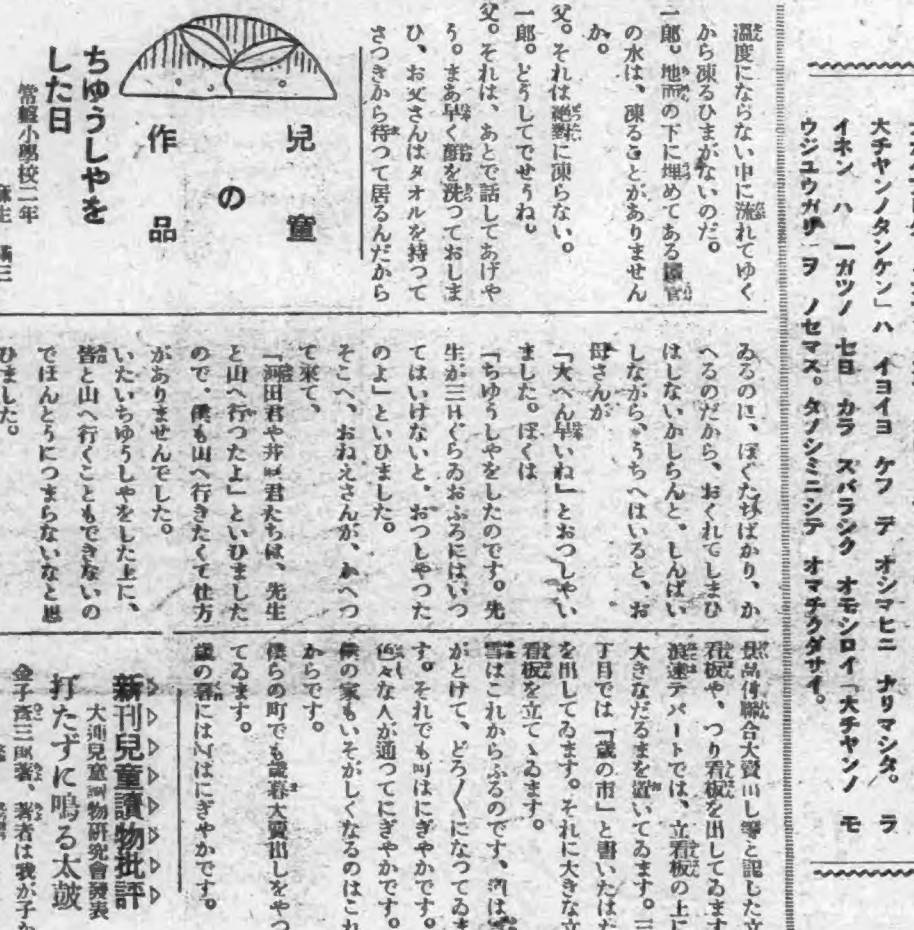 大チヤンノタンケン」ハ イヨイヨ ケフ デ オシマヒニ ナリマシタ。 ラ
イネン ハ 一ガツノ 七日 カラ スバラシク オモシロイ「大チヤンノ モ
ウジユウガリ」ヲ ノセマス。タノシミニシテ オマチクダサイ。
溫度にならない中に流れてゆく
から凍るひまがないのだ。
一郞。地面の下に埋めてある鐵管
の水は、凍ることがありません
か。
父。それは絕對に凍らない。
一郞。どうしてでせうね。
父。それは、あとで話してあげや
う。まあ早く顏を洗つておしま
ひ、お父さんはタオルを持つて
さつきから待つて居るんだから
兒童
の
作品
ちゆうしやを
した日
常盤小學校二年
ゐるのに、ぼくたちばかり、か
へるのだから、おくれてしまひ
はしないかしらんと。しんぱい
しながら、うちへはいると、お
母さんが
「大へん早いね」とおつしやい
ました。ぼくは
「ちゆうしやをしたのです。先
生が三日ぐらゐおふろにはいつ
てはいけないと。おつしやつた
のよ」といひました。
そこへ、おねえさんが、かへつ
て來て、
「河田君や井口君たちは、先生
と山へ行つたよ」といひました
ので、僕も山へ行きたくて仕方
がありませんでした。
いたいちゆうしやをした上に、
皆と山へ行くこともできないの
でほんとうにつまらないなと思
ひました。
景品付聯合大賣出し等と記した立
看板や、つり看板を出してゐます
浪速デパートでは、立看板の上に
大きなだるまを置いてゐます。三
丁目では「歲の市」と書いたはた
を出してゐます。それに大きな立
看板を立てゝゐます。
雪はこれからふるのです、
がとけて、どろ〱になつてゐま
す。それでも町はにぎやかです。
色々な人が通つてにぎやかです。
僕の家もいそがしくなるのはこれ
からです。
僕らの町でも歲暮大賣出しをやつ
てゐます。
歲の暮には町はにぎやかです。
新刊兒童讀物批評
大連兒童讀物硏究會發表
打たずに鳴る太鼓
金子齊三郞著、著者は我が子か